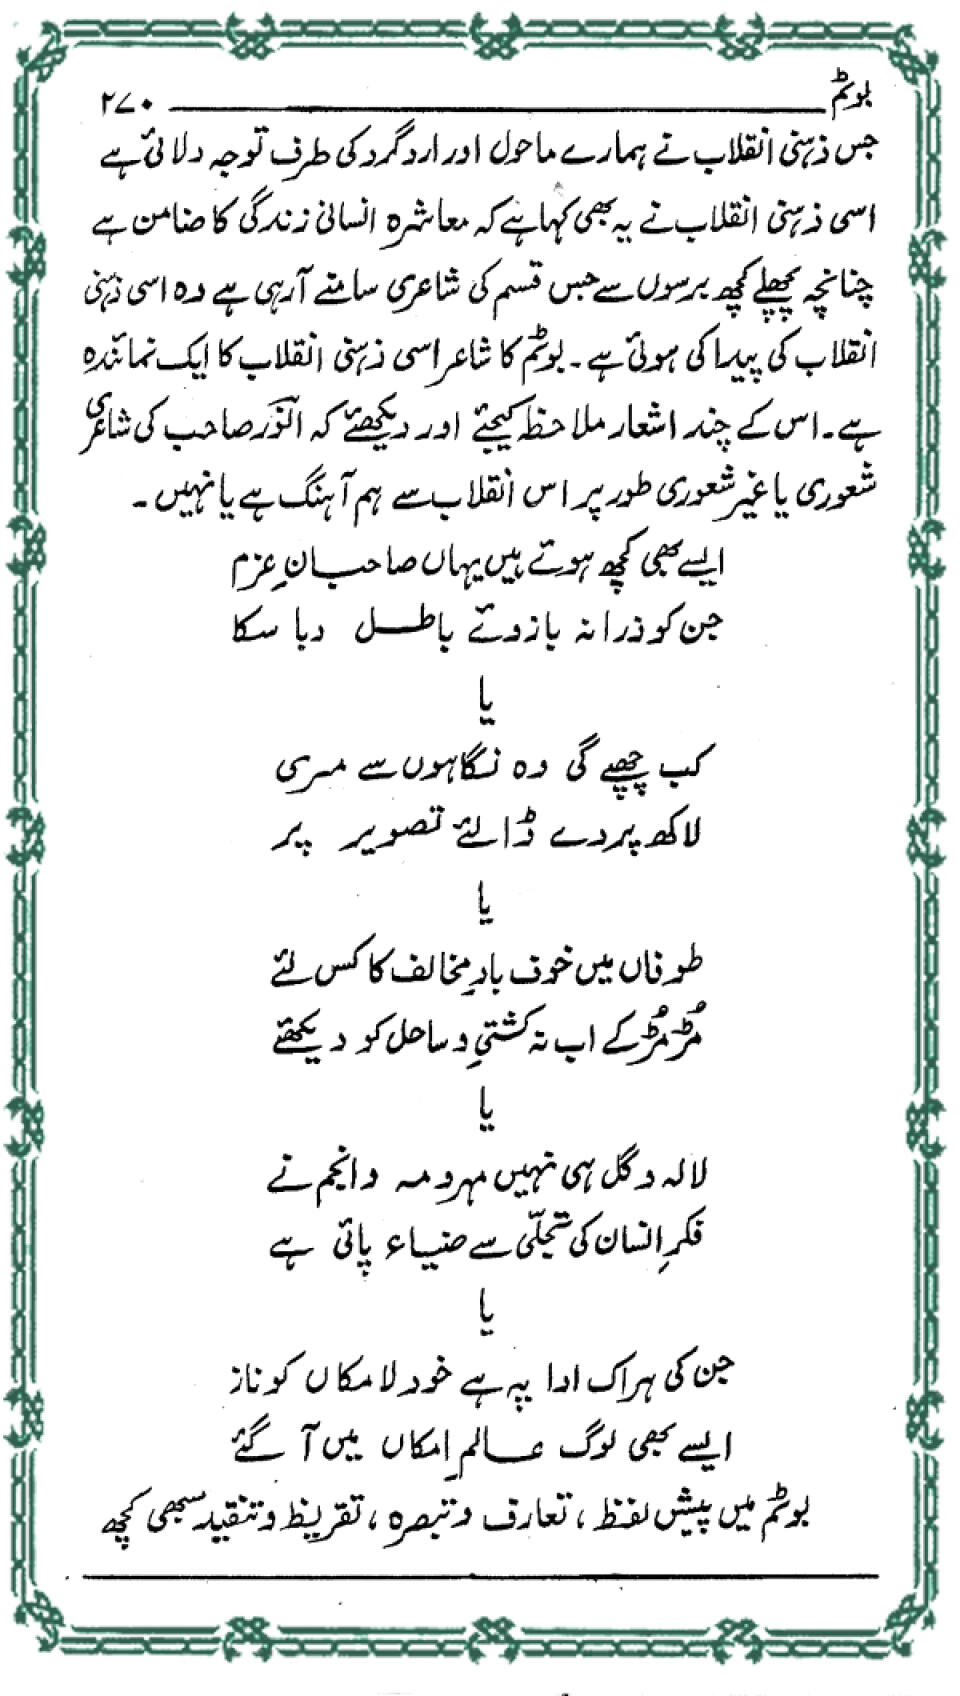 بوٹم ۲۷۰
جس ذہنی انقلاب نے ہمارے ماحول اور اردگرد کی طرف توجہ دلائی ہے
اسی ذہنی انقلاب نے یہ بھی کہا ہے کہ معاشرہ انسانی زندگی کا ضامن ہے
چنانچہ پچھلے کچھ برسوں سے جس قسم کی شاعری سامنے آرہی ہے وہ اسی ذہنی
انقلاب کی پیدا کی ہوئی ہے۔ بوٹم کا شاعر اسی ذہنی انقلاب کا ایک نمائندہ
ہے۔ اس کے چند اشعار ملاحظہ کیجئے اور دیکھئے کہ انور صاحب کی شاعری
شعوری یا غیر شعوری طور پر اس انقلاب سے ہم آہنگ ہے یا نہیں۔
ایسے بھی کچھ ہوتے ہیں یہاں صاحبانِ عزم
جن کو ذرا نہ بازوئے باطل دبا سکا
یا
کب چھپے گی وہ نگاہوں سے مری
لاکھ پردے ڈالئے تصویر پر
یا
طوفاں میں خوف بادِ مخالف کا کس لئے
مُڑ مُڑ کے اب نہ کشتیِ و ساحل کو دیکھئے
یا
لالہ و گل ہی نہیں مہر و مہ و انجم نے
فکرِ انسان کی تجلّی سے ضیاء پائی ہے
یا
جن کی ہر اک ادا پہ ہے خود لامکاں کو ناز
ایسے بھی لوگ عالمِ امکاں میں آ گئے
بوٹم میں پیش لفظ، تعارف و تبصرہ، تقریظ و تنقید سبھی کچھ